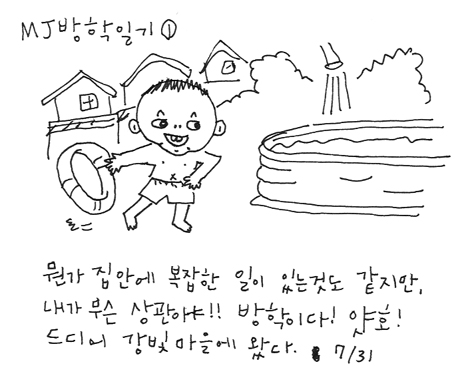 MJ방학일기①
뭔가 집안에 복잡한 일이 있는것도 같지만,
내가 무슨 상관이야!! 방학이다! 얏호!
드디어 강빛마을에 왔다. 7/31